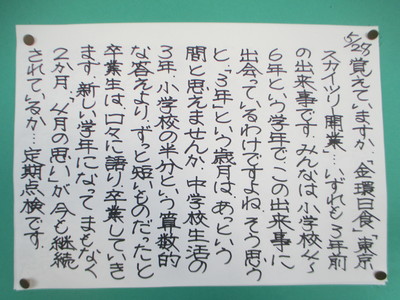 5/27 覚えていますか.「金環日食」「東京
スカイツリー開業」…いずれも3年前
の出来事です.みんなは小学校4〜
6年という学年で、この出来事に
出会っているわけですよね.そう思う
と、「3年」という歳月は、あっという
間と思えませんか.中学校生活の
3年.小学校の半分という算数的
な答えより、ずっと短いものだったと
卒業生は、口々に語り卒業していき
ます.新しい学年になって まもなく
2か月.「4月の思い」が今も継続
されているか…定期点検です.